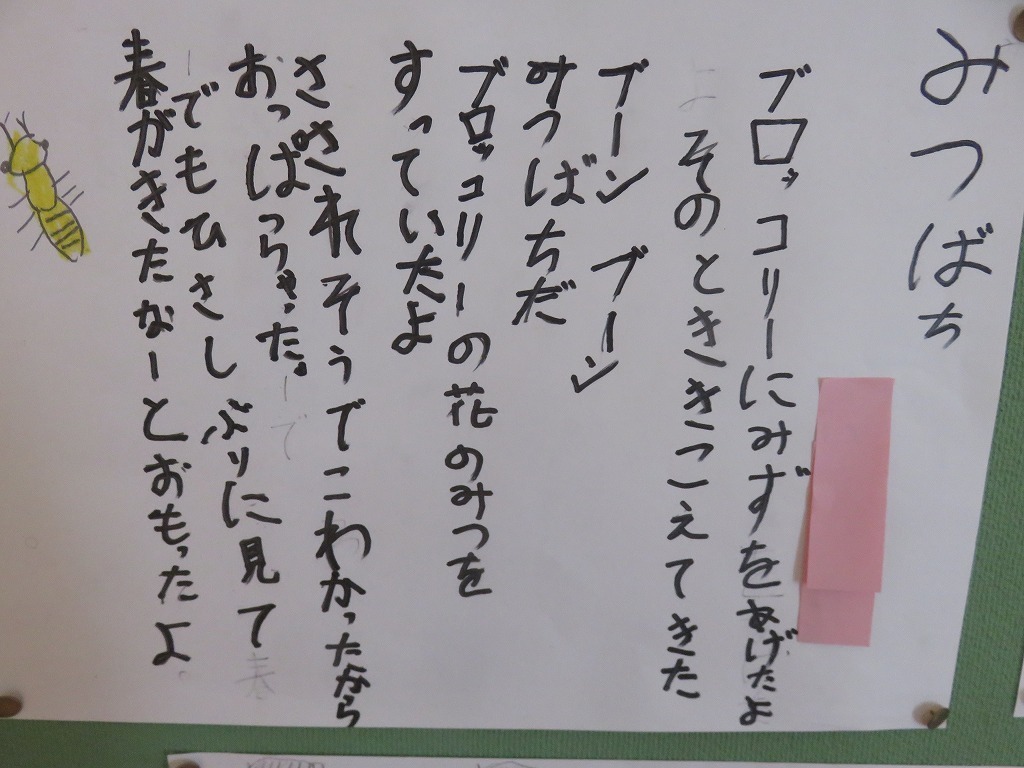 みつばち
ブロッコリーにみずをあげたよ
そのときききこえてきた
ブーン ブーン
みつばちだ
ブロッコリーの花のみつを
すっていたよ
さされそうでこわかったなら
おっぱらゃった。
でもひさしぶりに見て
春がきたなーとおもったよ